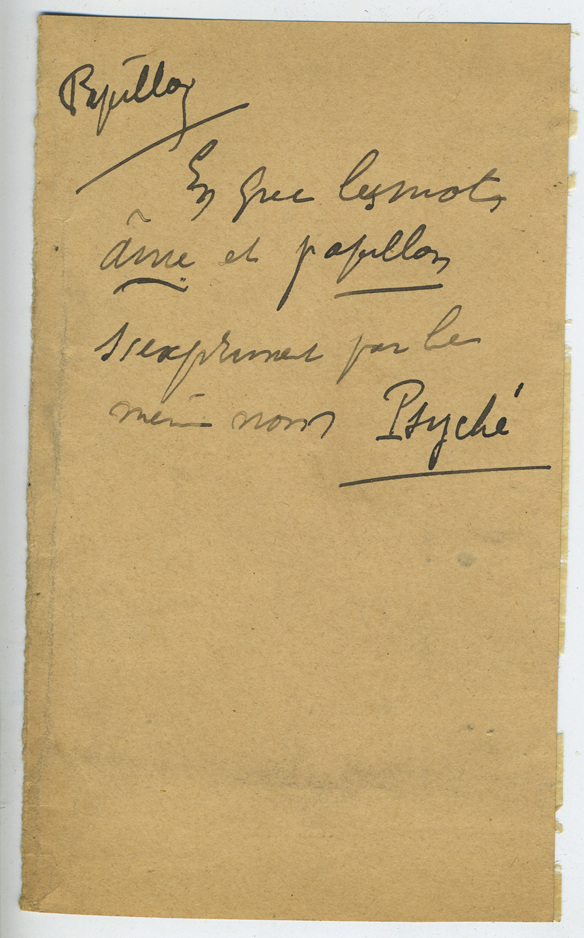 Papillon
En grec les mots
âme et papillon
s'expriment par le
même nom Psyché